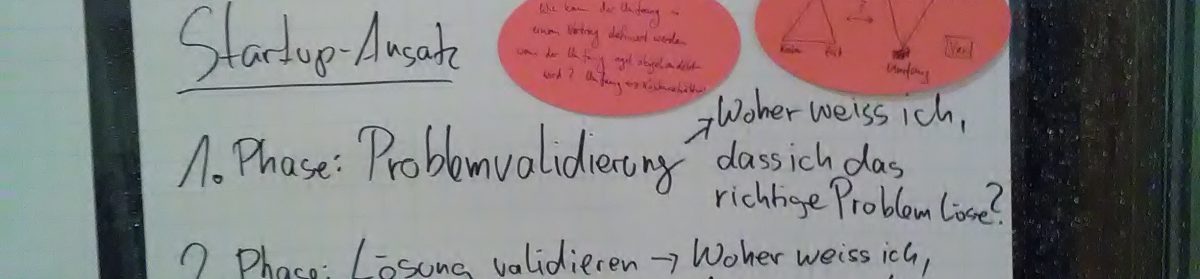 Startup-Ansatz
Wie kann der Umfang in
einem Vertrag definiert werden
wenn der Umfang agil abgehandelt
wird? Umfang
Umfang
1. Phase: Problemvalidierung → Woher weiss ich,
dass ich das
richtige Problem löse?
2. Phase: Lösung validieren → Woher weiss ich,